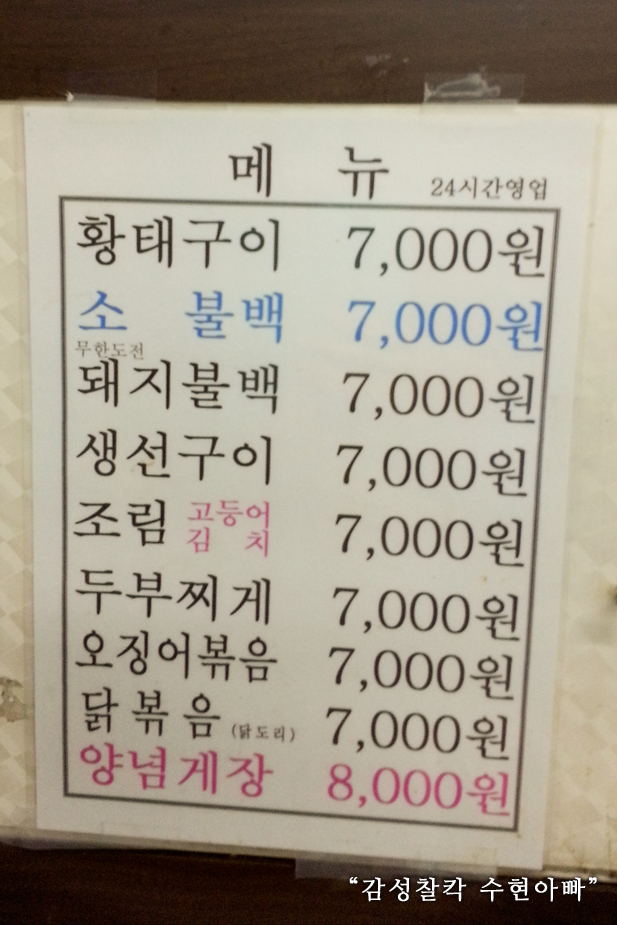 메 뉴 24시간영업
황태구이 7,000원
소 불백 7,000원
무한도전
돼지불백 7,000원
생선구이 7,000원
조림 고등어 김치 7,000원
두부찌게 7,000원
오징어볶음 7,000원
닭볶음 (닭도리) 7,000원
양념게장 8,000원
“감성찰칵 수현아빠”